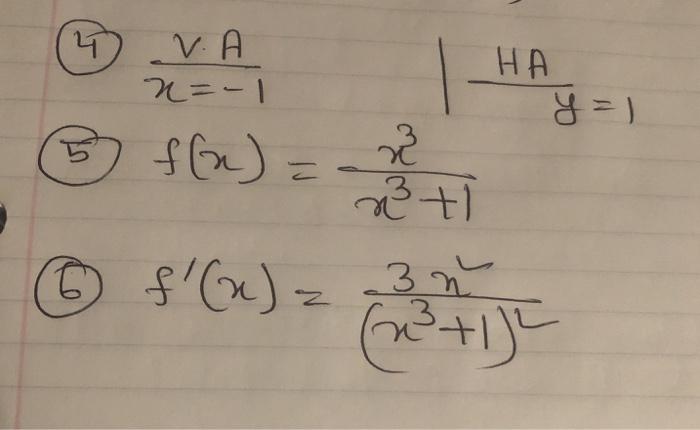 ④ V.A / x = -1 | HA / y = 1
⑤ f(x) = x³ / x³ + 1
⑥ f'(x) = 3x² / (x³ + 1)²